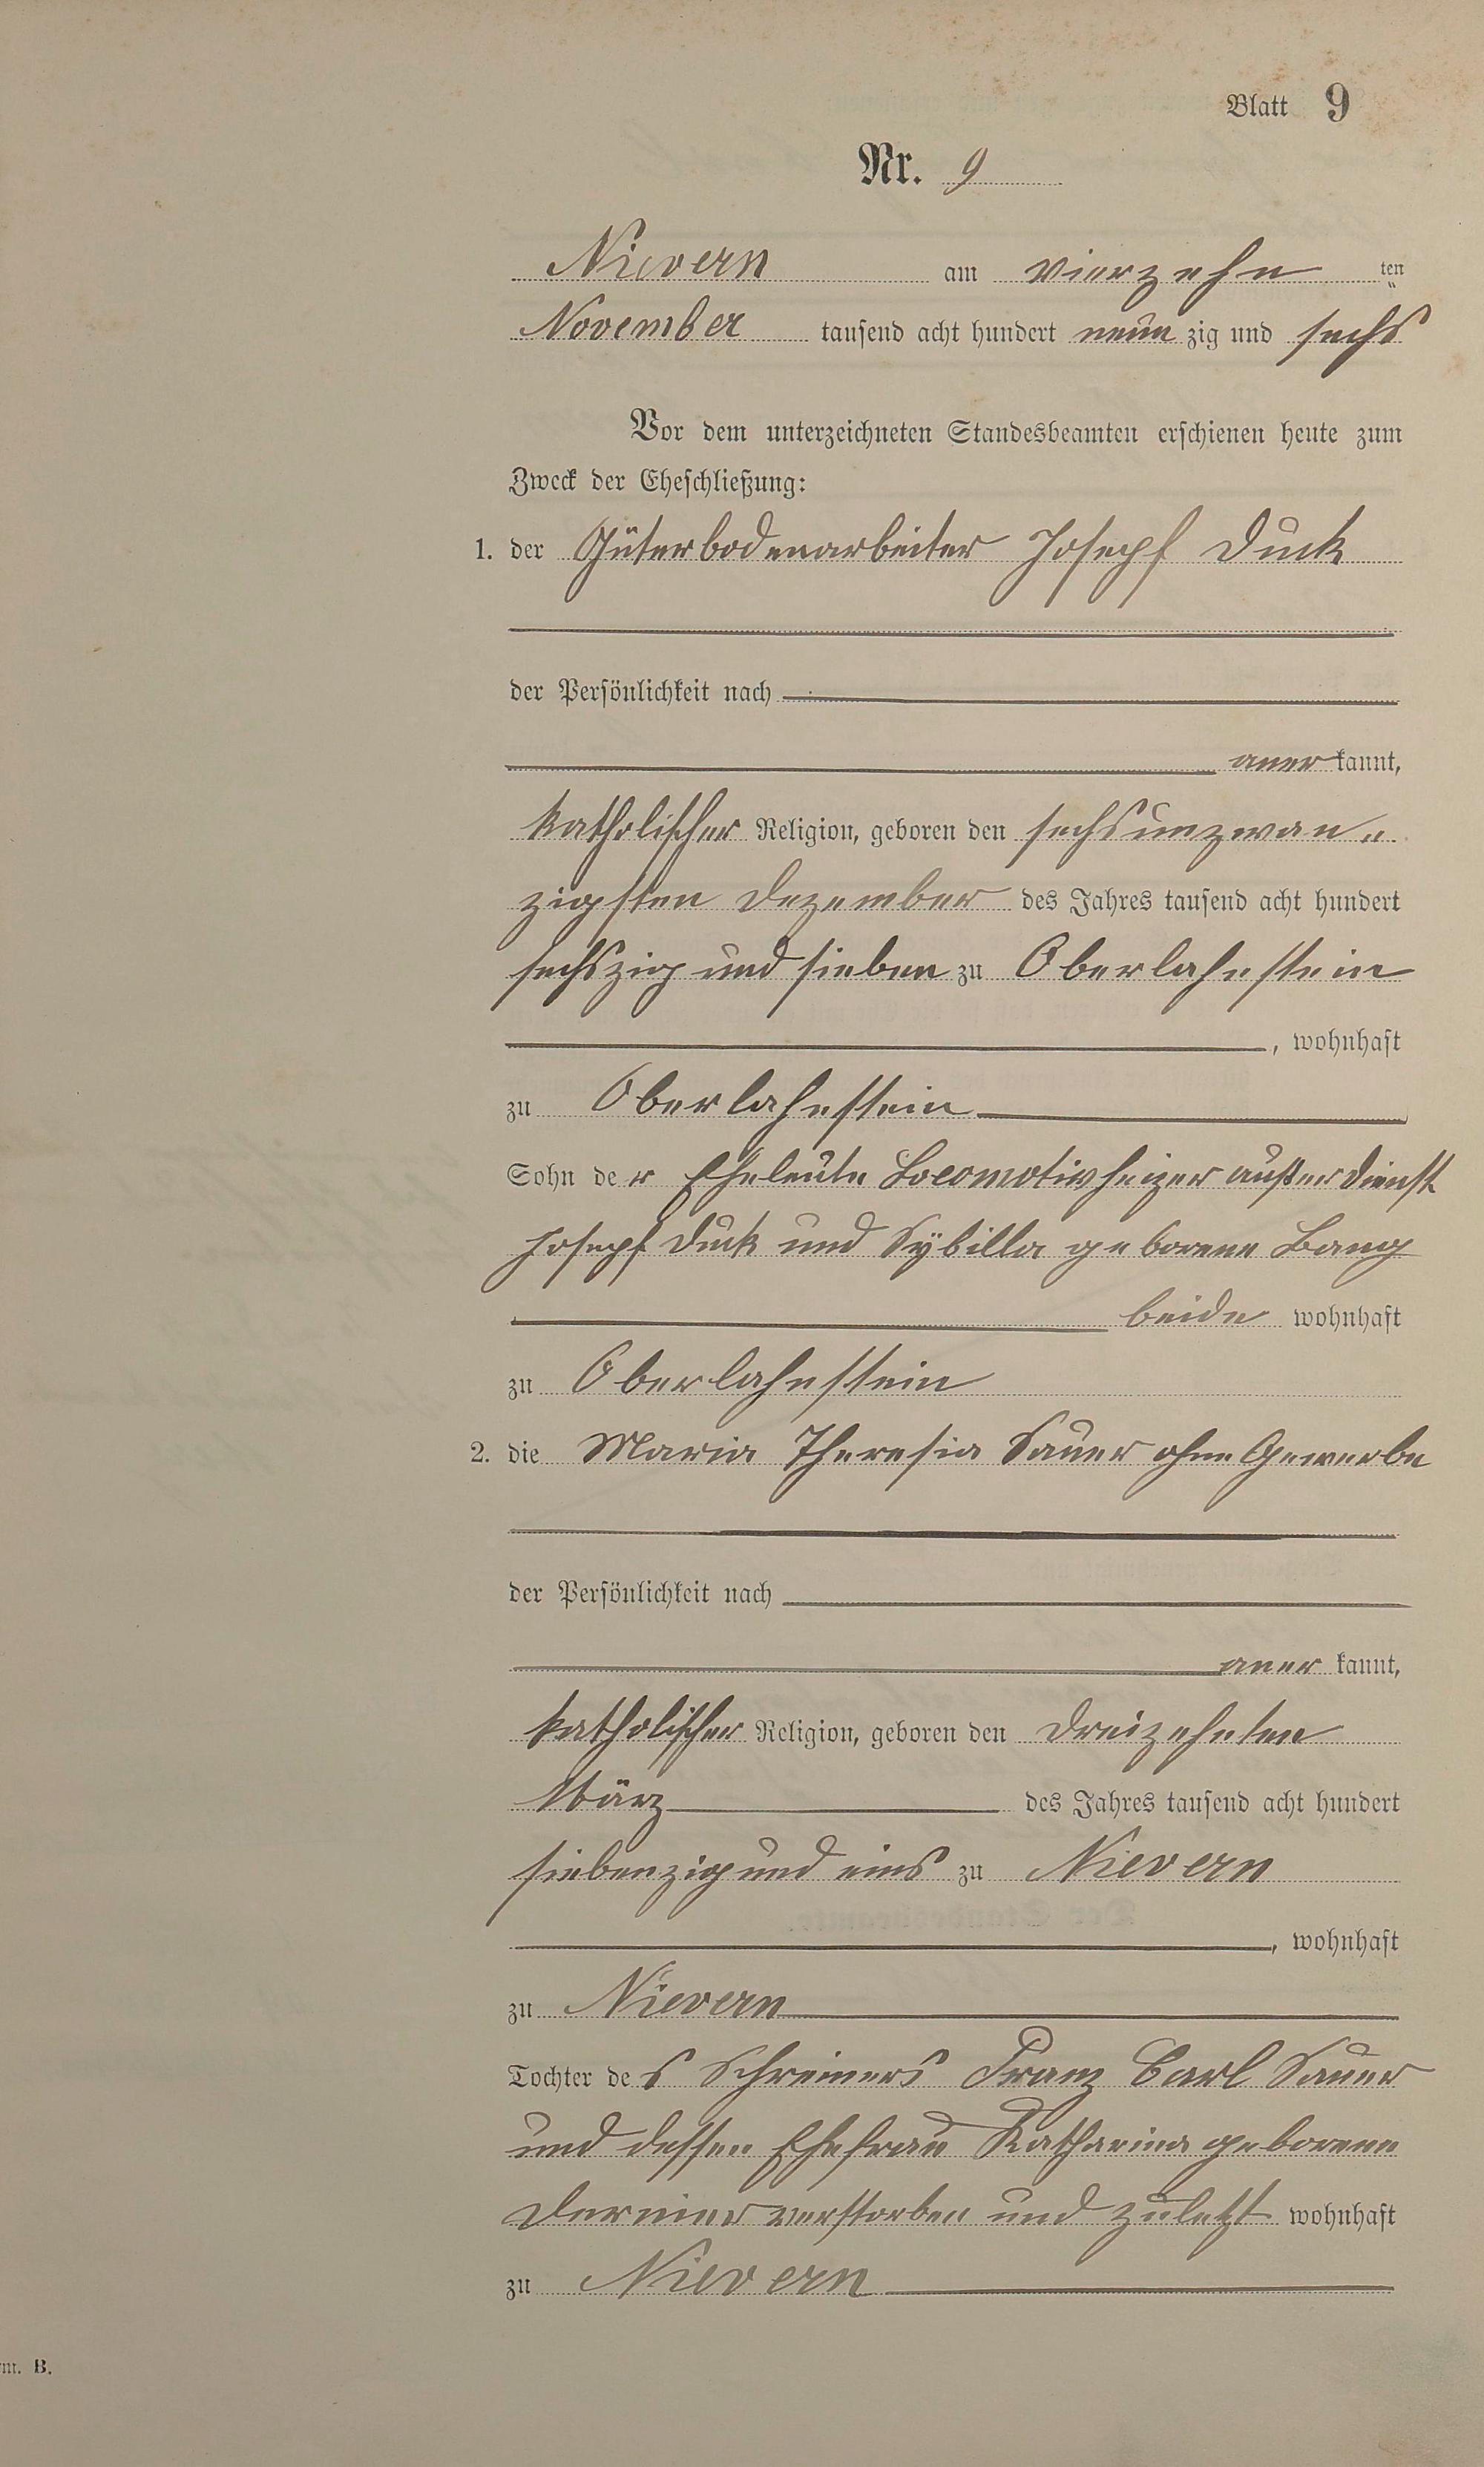 Blatt 9
Nr. 9
Nievern am vierzehn ten
November tausend acht hundert neun zig und sechs
Vor dem unterzeichneten Standesbeamten erschienen heute zum
Zweck der Eheschließung:
1. der Güterbodenarbeiter Josepf Duck
der Persönlichkeit nach
aner kannt,
katholischer Religion, geboren den sechsunzwan„
zigsten Dezember des Jahres tausend acht hundert
sechszig und sieben zu Oberlahnstein
, wohnhaft
zu Oberlahnstein
Sohn de r Eheleute Locomotivheizer außer Dienst
Josepf Duck und Sÿbilla geborene Bang
beide wohnhaft
zu Oberlahnstein
2. die Maria Theresia Sauer ohne Gewerbe
der Persönlichkeit nach
aner kannt,
katholischer Religion, geboren den dreizehnten
März des Jahres tausend acht hundert
siebenzig und eins zu Nievern
, wohnhaft
zu Nievern
Tochter de s Schreiners Franz Carl Sauer
und dessen Ehefrau Katharina geborene
verstorben und zuletzt wohnhaft
zu Nievern
B.